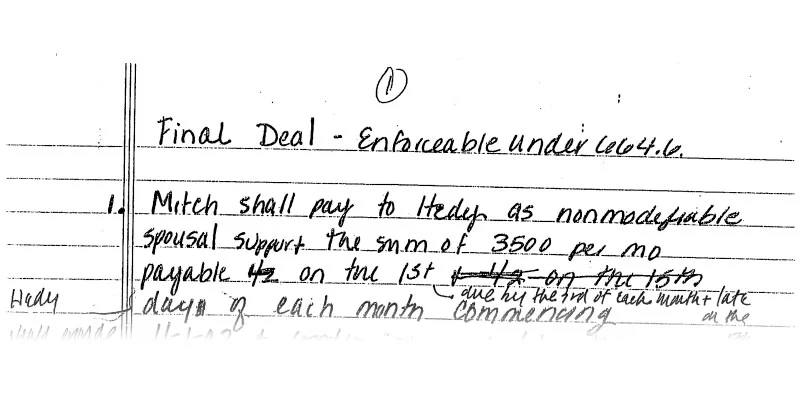 1
Final Deal - Enforceable under 664.6.
1. Mitch shall pay to Hedy as nonmodifiable
spousal support the sum of 3500 per mo
payable 1/2 on the 1st + 1/2 on the 15th
due by the 3rd of each month + late
Hedy
day of each month commencing
on the